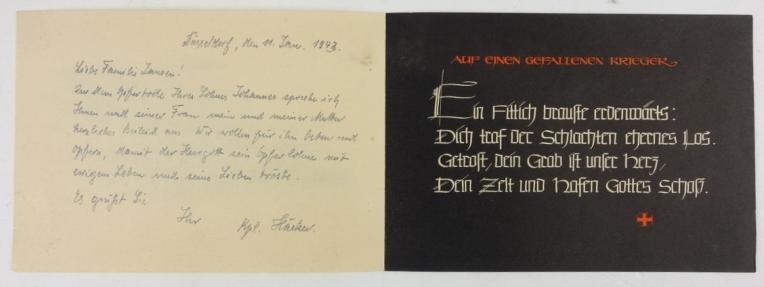 Düsseldorf, den 11. Jan. 1943.
Liebe Familie Jansen!
Zu dem Opfertode Ihres Sohnes Johannes spreche ich
Ihnen und seiner Frau mein und meiner Mutter
herzliches Beileid aus. Wir wollen für ihn beten und
opfern, damit der Herrgott sein Opfer lohne mit
ewigem Leben und seine Lieben tröste.
Es grüßt Sie
Ihr
Kpl.
AUF EINEN GEFALLENEN KRIEGER
Ein Fittich brauste erdenwärts:
Dich traf der Schlachten ehernes Los.
Getrost, dein Grab ist unser Herz,
Dein Zelt und Hafen Gottes Schoß.